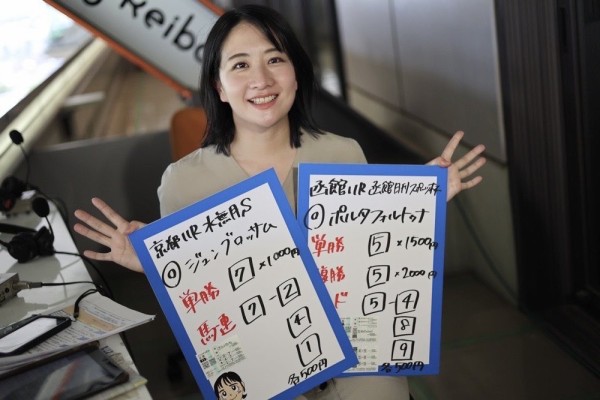 Keiba
京都11R 水無月S
◎ ジュンブロッサム
単勝 7 ×1000円
馬連 7-2
4
1
各500円
函館11R 函館日刊スポーツ杯
◎ ポルタフォルトゥナ
単勝 5 ×1500円
複勝 5 ×2000円
ド 5-4
8
9
各500円